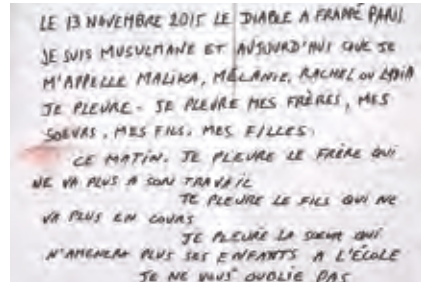 LE 13 NOVEMBRE 2015 LE DIABLE A FRAPPÉ PARIS
JE SUIS MUSULMANE ET AUJOURD'HUI QUE JE
M'APPELLE MALIKA, MÉLANIE, RACHEL OU LYDIA
JE PLEURE - JE PLEURE MES FRÈRES, MES
SOEURS, MES FILS, MES FILLES.
CE MATIN. JE PLEURE LE FRÈRE QUI
NE VA PLUS A SON TRAVAIL
JE PLEURE LE FILS QUI NE
VA PLUS EN COURS
JE PLEURE LA SOEUR QUI
N'AMENERA PLUS SES ENFANTS A L'ÉCOLE
JE NE VOUS OUBLIE PAS